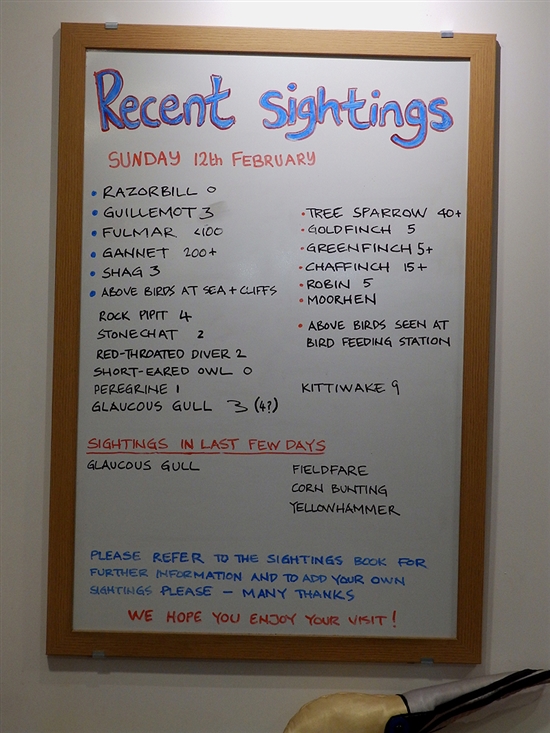 Recent Sightings
SUNDAY 12th FEBRUARY
• RAZORBILL 0
• GUILLEMOT 3
• FULMAR <100
• GANNET 200+
• SHAG 3
• ABOVE BIRDS AT SEA + CLIFFS
ROCK PIPIT 4
STONECHAT 2
RED-THROATED DIVER 2
SHORT-EARED OWL 0
PEREGRINE 1
GLAUCOUS GULL 3 (4?)
• TREE SPARROW 40+
• GOLDFINCH 5
• GREENFINCH 5+
• CHAFFINCH 15+
• ROBIN 5
• MOORHEN
• ABOVE BIRDS SEEN AT
BIRD FEEDING STATION
KITTIWAKE 9
SIGHTINGS IN LAST FEW DAYS
GLAUCOUS GULL
FIELDFARE
CORN BUNTING
YELLOWHAMMER
PLEASE REFER TO THE SIGHTINGS BOOK FOR
FURTHER INFORMATION AND TO ADD YOUR OWN
SIGHTINGS PLEASE – MANY THANKS
WE HOPE YOU ENJOY YOUR VISIT!